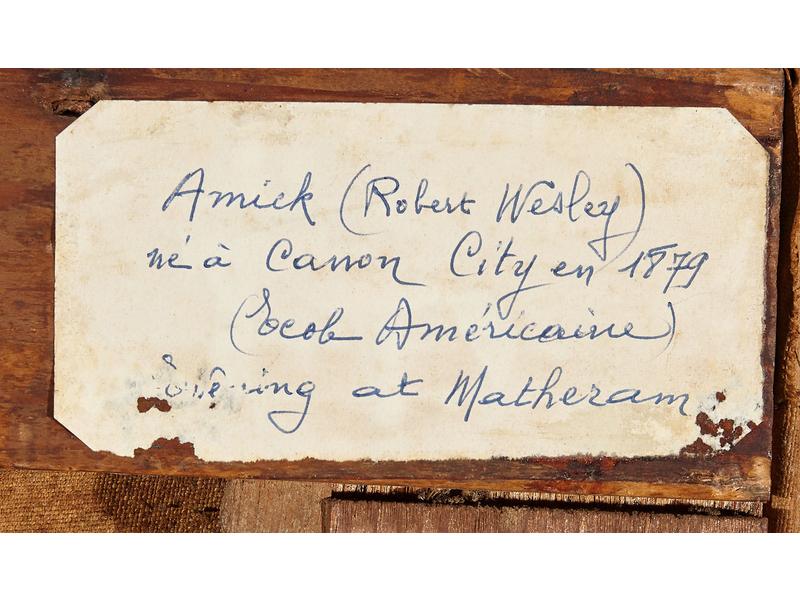 Amick (Robert Wesley)
né à Canon City en 1879
(Ecole Américaine)
at Matheram